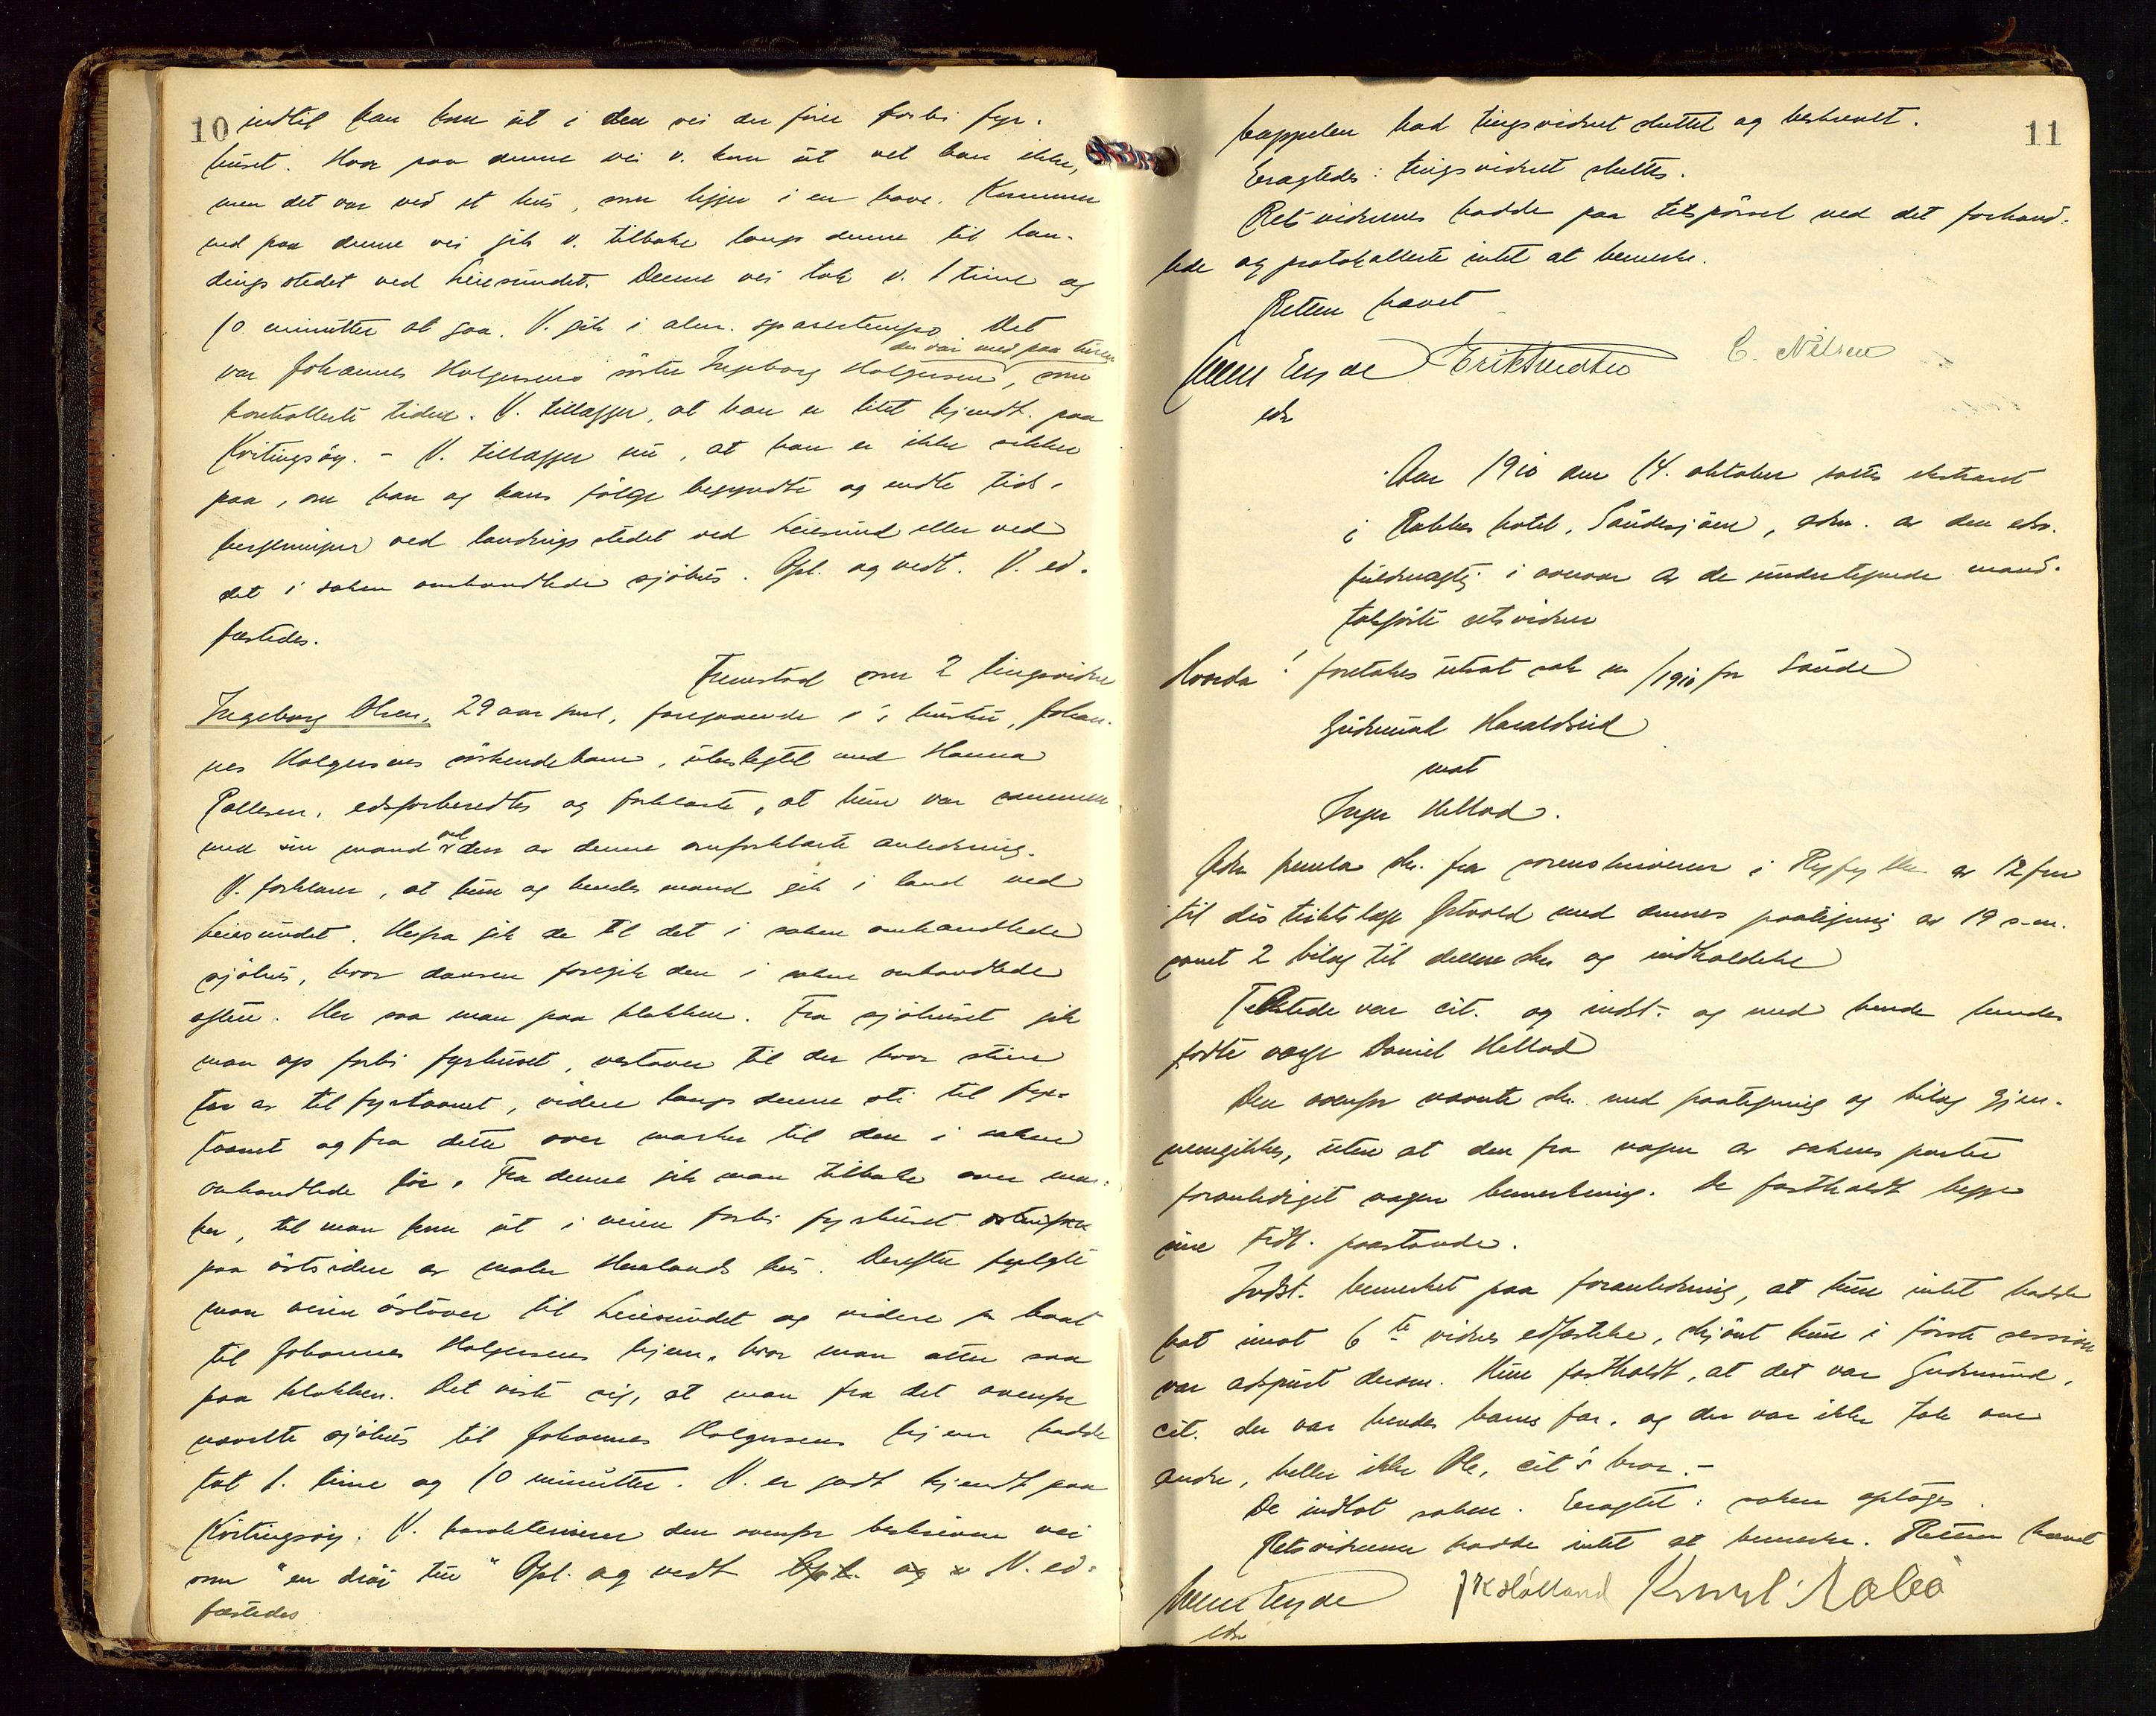 10
indtil han kom ut i den vei der fører forbi fyr-
huset. Hvor paa denne vei v. kom ut vet han ikke,
men det var ved et hus, som ligger i en have. Kommen
ned paa denne vei gik v. tilbake langs denne til lan-
dingsstedet ved Leiesundet. Denne vei tok v. 1 time og
10 minutter at gaa. V. gik i alm. spasertempo. Det
der var med paa turen
var Johannes Holgersens søster Ingeborg Holgersen, som
kontrollerte tiden. V. tillægger, at han er litet kjendt paa
Kvitingsøy. - V. tillægger nu, at han er ikke sikker
paa, om han og hans følge begyndte og endte tids-
beregningen ved landingsstedet ved Leiesund eller ved
det i saken omhandlede sjøhus. Opl. og vedt. V. ed-
fæstedes.
Fremstod som 2 tingsvidne
Ingeborg Olsen, 29 aar gml., foregaaende v's hustru, Johan-
nes Holgersens søskendebarn, ubeslegtet med Hanna
Pallesen, edsforberedtes og forklarte, at hun var sammen
med sin mand ved den av denne omforklarte anledning.
V. forklarer, at hun og hendes mand gik i land ved
Leiesundet. Herfra gik de til det i saken omhandlede
sjøhus, hvor dansen foregik den i saken omhandlede
aften. Her saa man paa klokken. Fra sjøhuset gik
man op forbi fyrhuset, vestover til der hvor stien
tar av til fyrtaarnet, videre langs denne sti til fyr-
taarnet og fra dette over marken til den i saken
omhandlede . Fra denne gik man tilbake over mar-
ken, til man kom ut i veien forbi fyrhuset
paa østsiden av maler Haalands hus. Derefter fulgte
man veien østover til Leiesundet og videre pr baat
til Johannes Holgersens hjem, hvor man atter saa
paa klokken. Det viste sig, at man fra det ovenfor
nævnte sjøhus til Johannes Holgersens hjem hadde
tat 1. time og 10 minutter. V. er godt kjendt paa
Kvitingsøy. V. karakteriserer den ovenfor beskrevne vei
som "en drøi tur" Opl. og vedt Opl. og v V. ed-
fæstedes
11
Cappelen bad tingsvidnet sluttet og beskrevet.
Eragtedes: tingsvidnet sluttes.
Retsvidnerne hadde paa tilspørsel ved det forhand-
lede og protokollerte intet at bemerke.
Retten hævet
Erik Knudsen
C. Nilsen
edsv
Aar 1910 den 14. oktober sattes ekstraret
i Rabbes hotel, Saudesjøen, adm. av den edsv.
fuldmægtig i overvær av de undertegnede mand-
talsførte retsvidner
Hvorda! foretokes utsat sak nr /1910 fra Saude
Gudmund Haraldseid
mot
Inger Hellad.
Adm fremla skr. fra sorenskriveren i Ryfylke av 12 frm
til distriktslæge med dennes paategning av 19 s.m.
samt 2 bilag til denne skr og indholdelse
Tilstede var cit. og indst. og med hende hendes
fødte verge Daniel Hellad
Den ovenfor nævnte skr. med paategning og bilag gjen-
nemgikkes, uten at den fra nogen av sakens parter
foranlediget nogen bemerkning. De fastholdt begge
sine tidl. paastande.
Indst. bemerket paa foranledning, at hun intet hadde
hat imot 6te vidnes edfæstelse, skjønt hun i første session
var adspurt derom. Hun fastholdt, at det var Gudmund,
cit. der var hendes barns far, og der var ikke tale om
andre, heller ikke Ole, cit's bror.-
De indlot saken. Eragtet: saken optages.
Retsvidnerne hadde intet at bemerke. Retten hævet
J K Hølland
edsv